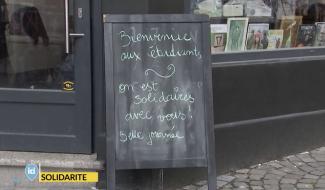 Bienvenue
aux étudiants,
on est
solidaires
avec vous!
Belle journée
ici
SOLIDARITE